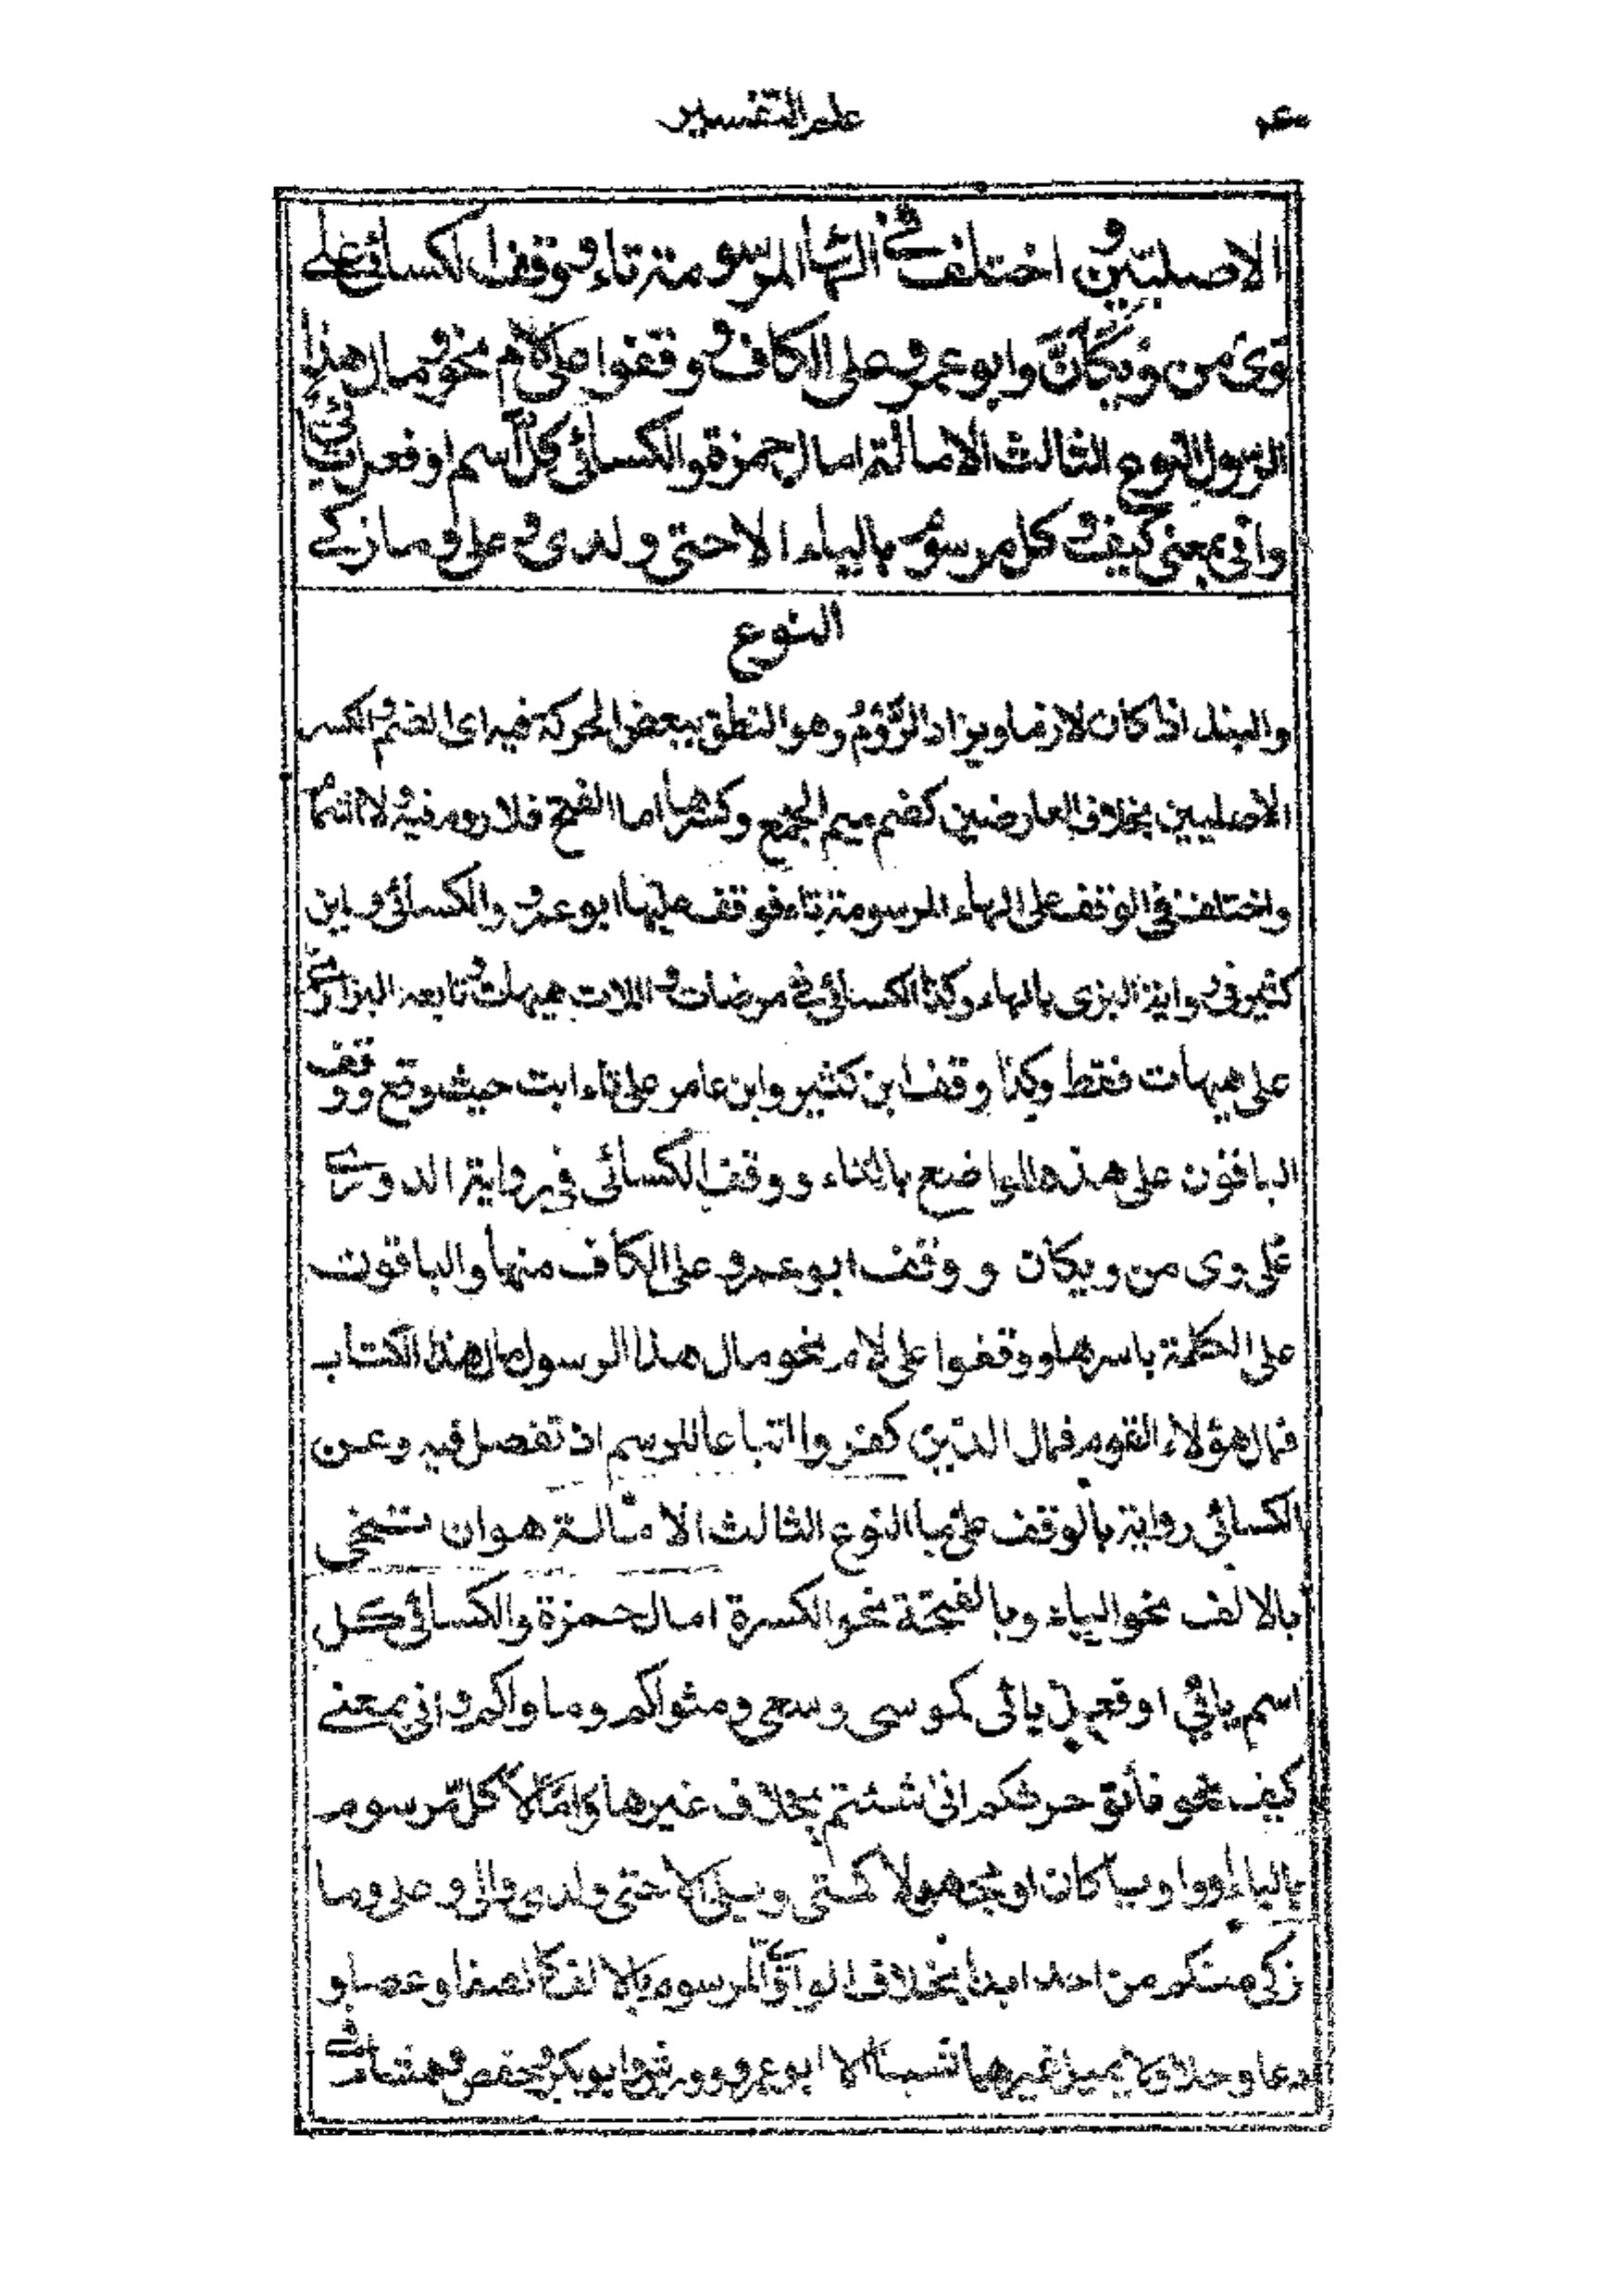 علم التفسير
الاصليتين و اختلف في الهاء المرسومة تاء و وقف الكسائي على
وى من ويكأن وابو عمرو على الكاف و وقفوا على لام نحو مال هذا
الرسول النوع الثالث الامالة امال حمزة والكسائي كل اسم او فعل يائي
واني بمعنى كيف و كل مرسوم بالياء الا حتى ولدى و على وما زكى
النوع
والبدل اذا كان لازما ويزاد الروم وهو النطق ببعض الحركة فيه اى الضم والكسر
الاصليين بخلاف العارضين كضم ميم الجمع وكسرها اما الفتح فلا روم فيه ولا اشمام
واختلف في الوقف على الهاء المرسومة تاء فوقف عليها ابو عمرو والكسائي وابن
كثير في رواية البزى بالهاء وكذا الكسائي في مرضات و اللات هيهات و تابعه البزى
على هيهات فقط وكذا وقف ابن كثير وابن عامر على تاء ابت حيث وقع ووقف
الباقون على هذه المواضع بالتاء ووقف الكسائي في رواية الدورى
على وى من ويكان و وقف ابو عمرو على الكاف منها والباقون
على الكلمة باسرها ووقفوا على لام نحو مال هذا الرسول مال هذا الكتاب
فمال هؤلاء القوم فمال الذين كفروا اتباعا للرسم اذ تفصل فيه وعن
الكسائي رواية بالوقف على ما النوع الثالث الامالة هو ان تنحى
بالالف نحو الياء وبالفتحة نحو الكسرة امال حمزة والكسائي كل
اسم يائي او فعل يائي كموسى وسعى ومثواكم وماواكم و انى بمعنى
كيف نحو فأتو حرثكم انى شئتم بخلاف غيرها وامالا كل مرسوم
بالياء واويا كان او مجهولا كمتى وبلى الا حتى ولدى والى وعلى وما
زكى منكم من احد ابدا بخلاف الواوى المرسوم بالالف كالصفا وعصا و
دعا وخلا ولا يميل غيرهما شيئا الا ابو عمرو وورش وابو بكر وحفص وهشام في